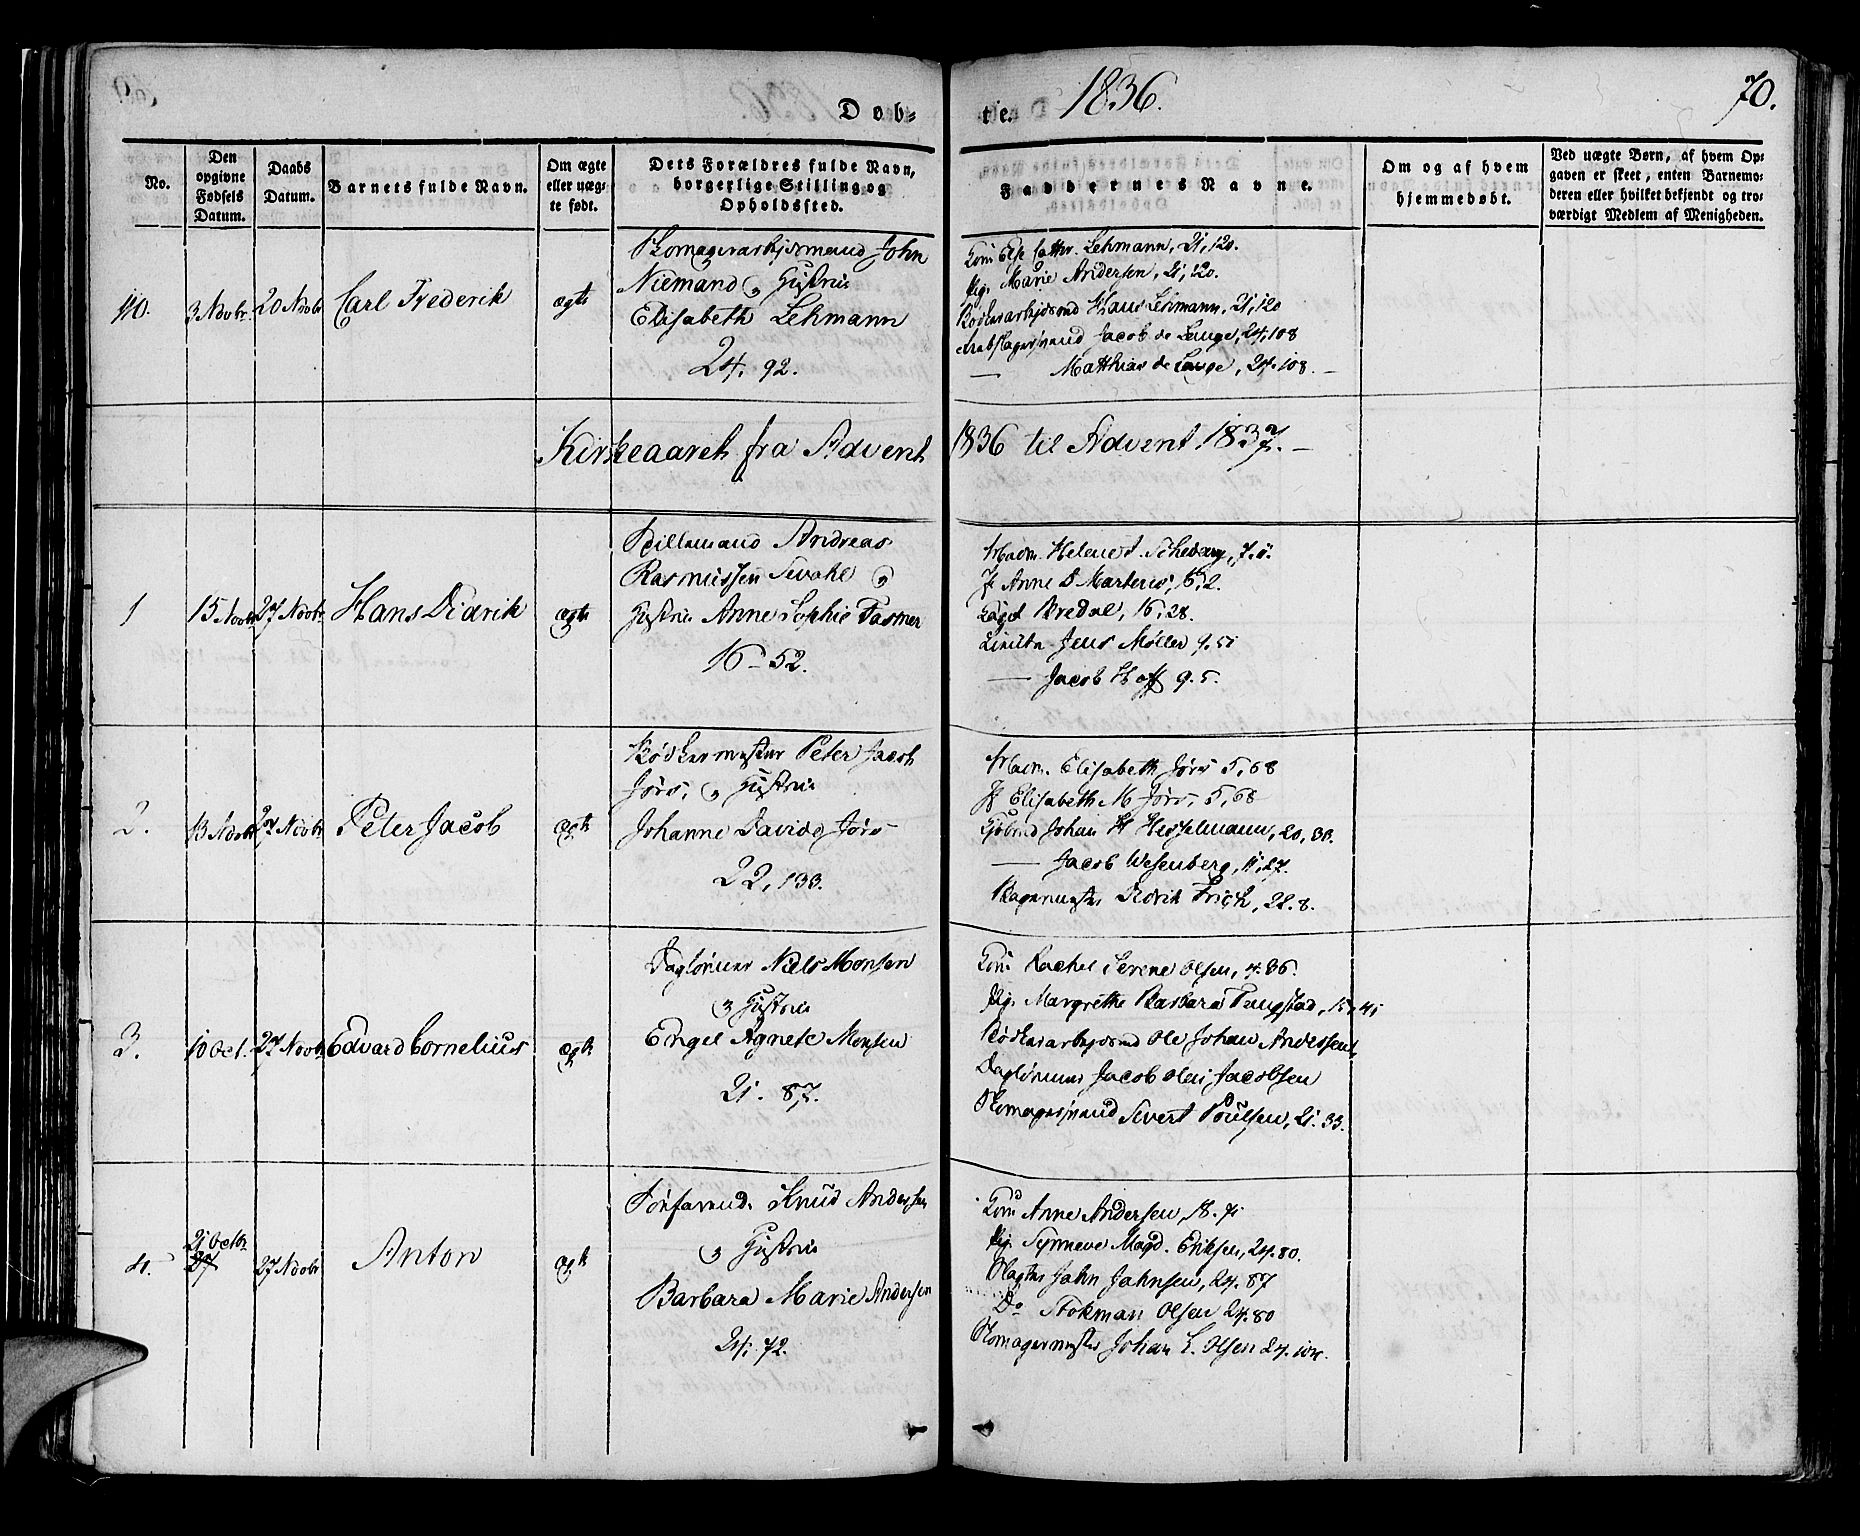 Døb-
tie.
1836.
70.
No.
Den
opgivne
Fødsels
Datum.
Daabs
Datum.
Barnets fulde Navn.
Om ægte
eller uæg-
te født.
Dets Forældres fulde Navn,
borgerlige Stilling og
Opholdssted.
Faddernes Navne.
Om og af hvem
hjemmedøbt.
Ved uægte Børn, af hvem Op-
gaven er skeet, enten Barnemo-
deren eller hvilket bekjendt og tro-
værdigt Medlem af Menigheden.
110.
3 Novbr.
20 Novbr
Carl Frederik
ægte
Skomagerarbejdsmand John
Niemand og Hustrue
Elisabeth Lehmann
24. 92.
Kone Else Cathr. Lehmann, 21, 120.
Pig. Marie Andersen, 21, 120.
Hans Lehmann, 21, 120
Jacob de Lange, 24, 108
— Matthias de Lange, 24. 108. —
Kirkeaaret fra Advent 1836 til Advent 1837. —
1
15 Novbr
27 Novbr.
Hans Didrik
ægte
Andreas
Rasmussen og
Hustrue Anne Sophie Tasmer
16 – 52.
Madm. Helene
Jf Anne D Martens, 6, 2.
Bredal, 16, 28.
Jens Møller 9. 51
— Jacob Hoff 9. 5.
2.
13 Novbr
27 Novbr
Peter Jacob
ægte
Bødkermester Peter Jacob
Jørs, og Hustrue
Johanne Davide Jørs
22, 133.
Madm. Elisabeth Jørs 5, 68
Jf Elisabeth M Jørs, 5, 68
Johan H Hesselmann, 20, 30.
— Jacob Wesenberg, 11, 27.
Bagermester Didrik Frich, 22. 8.
3.
10 Oct.
27 Novbr
Edvard Cornelius
ægte
Daglønner Niels Monsen
og Hustrue
Engel Agnete Monsen
21. 87.
Kone Rachel Serene Olsen, 4. 86.
Pig. Margrethe Barbara
Bødkerarbejdsmd Ole Johan Anderssen
Daglønner Jacob Olai Jacobsen
Skomagersvend Sivert Poulsen, 21. 33.
4.
21 Octbr
27
27 Novbr
Anton
ægte
Knud Andersen
og Hustrue
Barbara Marie Andersen
24. 72.
Kone Anne Andersen, 18. 71
Pig. Synneve Magd. Eriksen, 24. 80.
Slagter John Johnsen, 24. 87
Do Stokman Olsen 24. 80
Skomagermester Johan L. Olsen 24. 104.